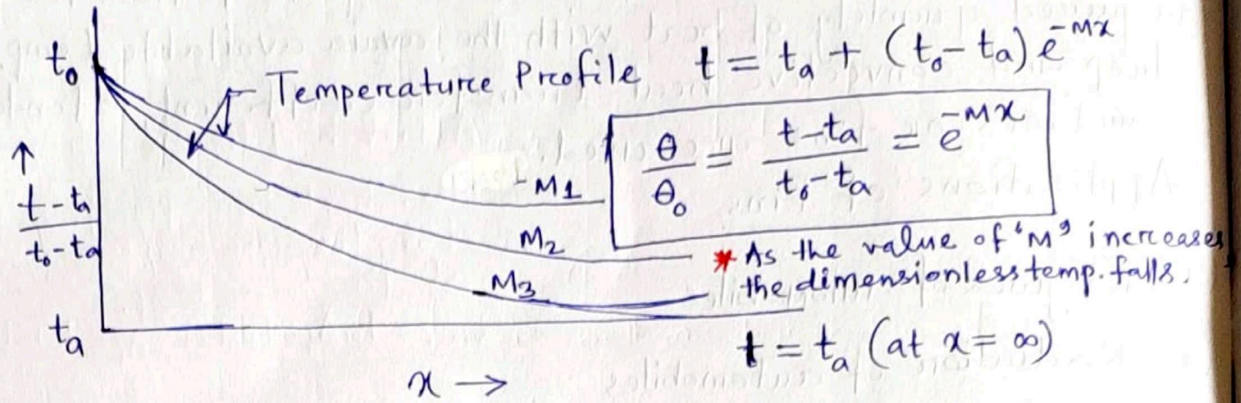 t₀
Temperature Profile
t = tₐ + (t₀ - tₐ) e^-Mx
θ/θ₀ = (t - tₐ)/(t₀ - tₐ) = e^-Mx
↑
(t - tₐ)/(t₀ - tₐ)
M1
M2
M3
* As the value of 'M' increases,
the dimensionless temp. falls.
tₐ
t = tₐ (at x = ∞)
x →